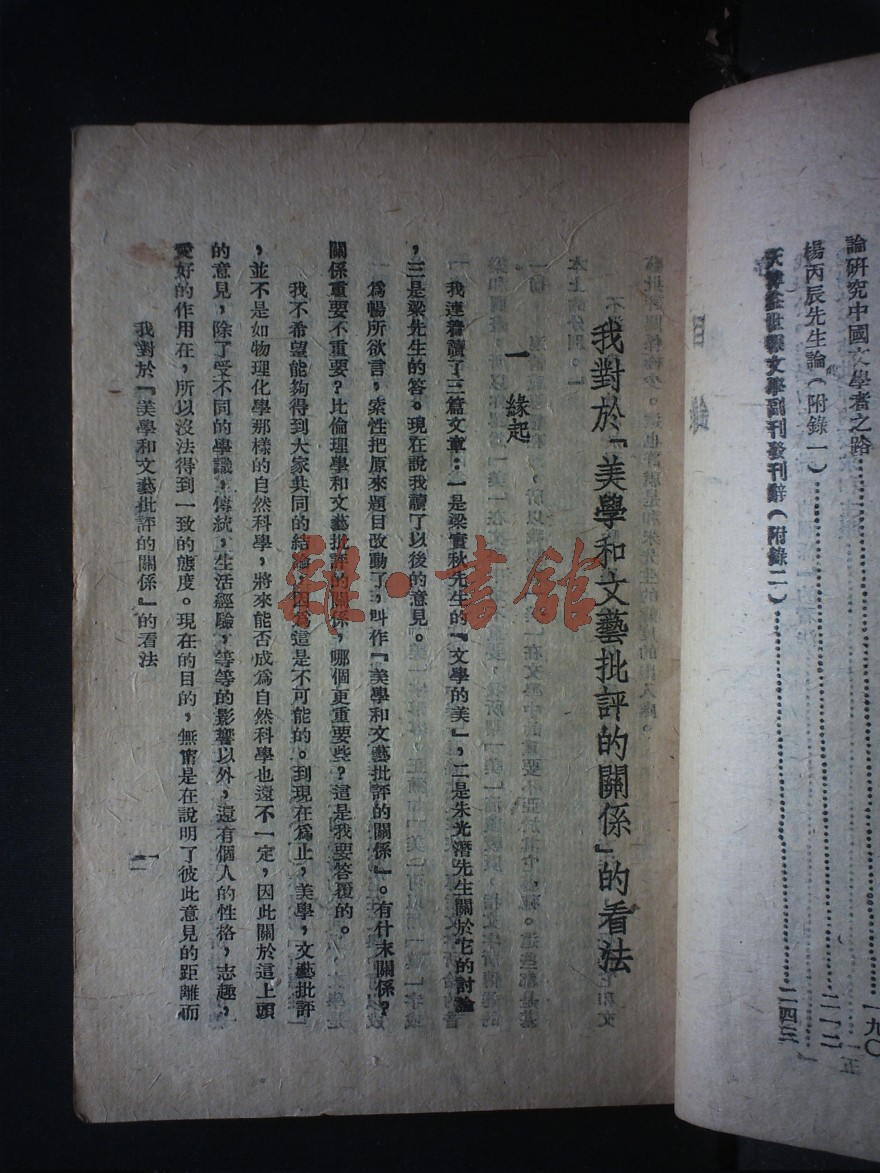 論研究中國文學者之路……一九〇
楊丙辰先生論(附錄一)……二一二
天津益世報文學副刊發刊辭(附錄二)……二四三
我對於『美學和文藝批評的關係』的看法
一　緣起
我連着讀了三篇文章:一是梁實秋先生的『文學的美』,二是朱光潛先生關於它的討論
,三是梁先生的答。現在說我讀了以後的意見。
爲暢所欲言,索性把原來題目改動了,叫作『美學和文藝批評的關係』。有什末關係?
關係重要不重要?比倫理學和文藝批評的關係,哪個更重要些?這是我要答覆的。
我不希望能夠得到大家共同的結論,因爲這是不可能的。到現在爲止,美學,文藝批評
,並不是如物理化學那樣的自然科學,將來能否成爲自然科學也還不一定,因此關於這上頭
的意見,除了受不同的學識,傳統,生活經驗,等等的影響以外,還有個人的性格,志趣,
愛好的作用在,所以沒法得到一致的態度。現在的目的,無甯是在說明了彼此意見的距離而
我對於『美學和文藝批評的關係』的看法
一
雜·書館